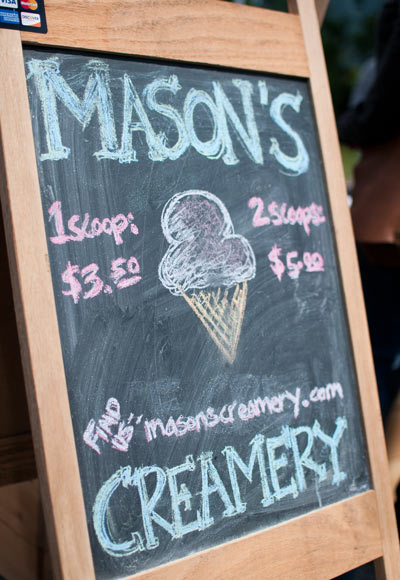 VISA
MasterCard
DISCOVER
MASON'S
1 scoop: 2 scoops:
$3.50 $5.00
FIND US: masonscreamery.com
CREAMERY